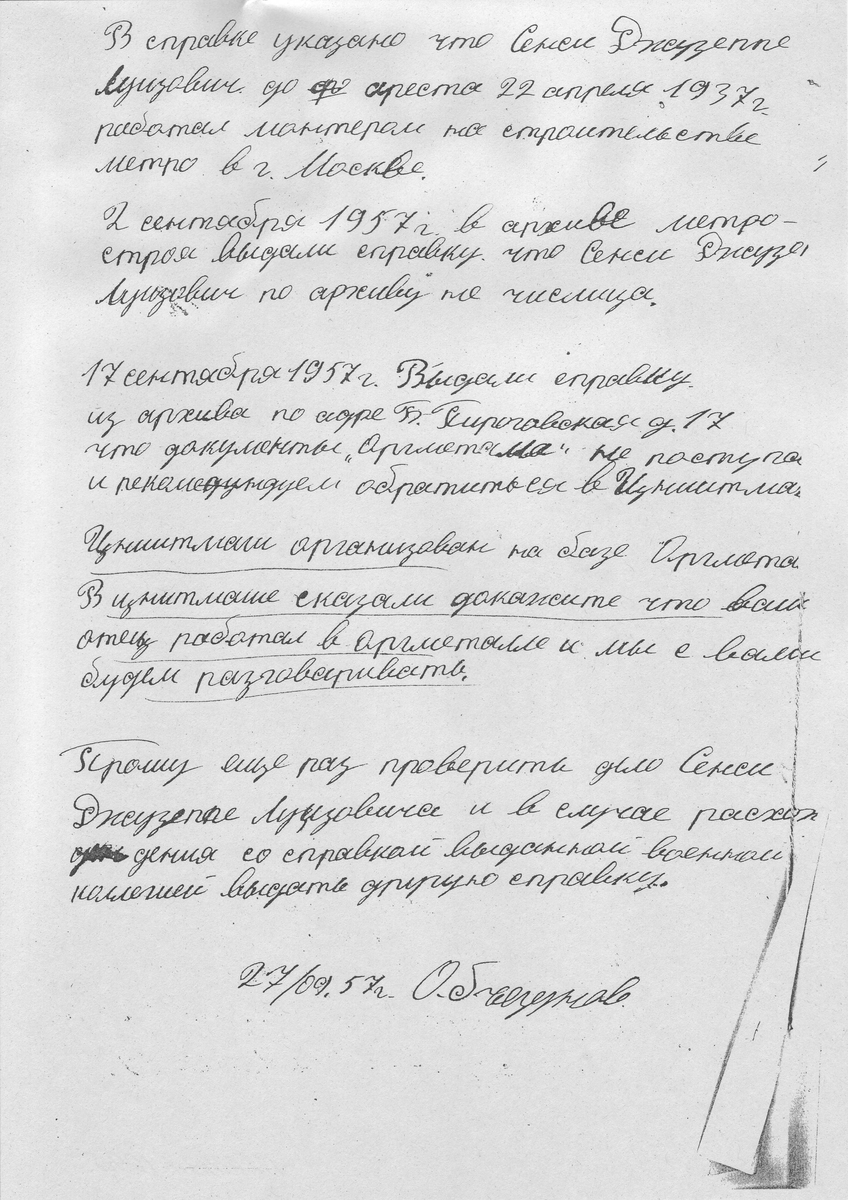 В справке указано что Сенси Джузеппе
Луизович. до ареста 22 апреля 1937г.
работал монтером на строительстве
метро в г. Москве.
2 сентября 1957г. в архиве метро-
строя выдали справку. что Сенси Джузе
Луизович по архиву не числица.
17 сентября 1957г. Выдали справку
из архива по адре Б. Пироговская д. 17
что документы „Оргметалла" не поступа
и рекомендуем обратиться в Цниитма
Цниитмаш организован на базе Оргмета
В цнитмаше сказали докажите что ваш
отец работал в Оргметалле и мы с вами
будем разговаривать.
Прошу еще раз проверить дело Сенси
Джузеппе Луизовича и в случае расхож
дения со справкой выданной военной
колегией выдать другую справку.
27/09.57г.